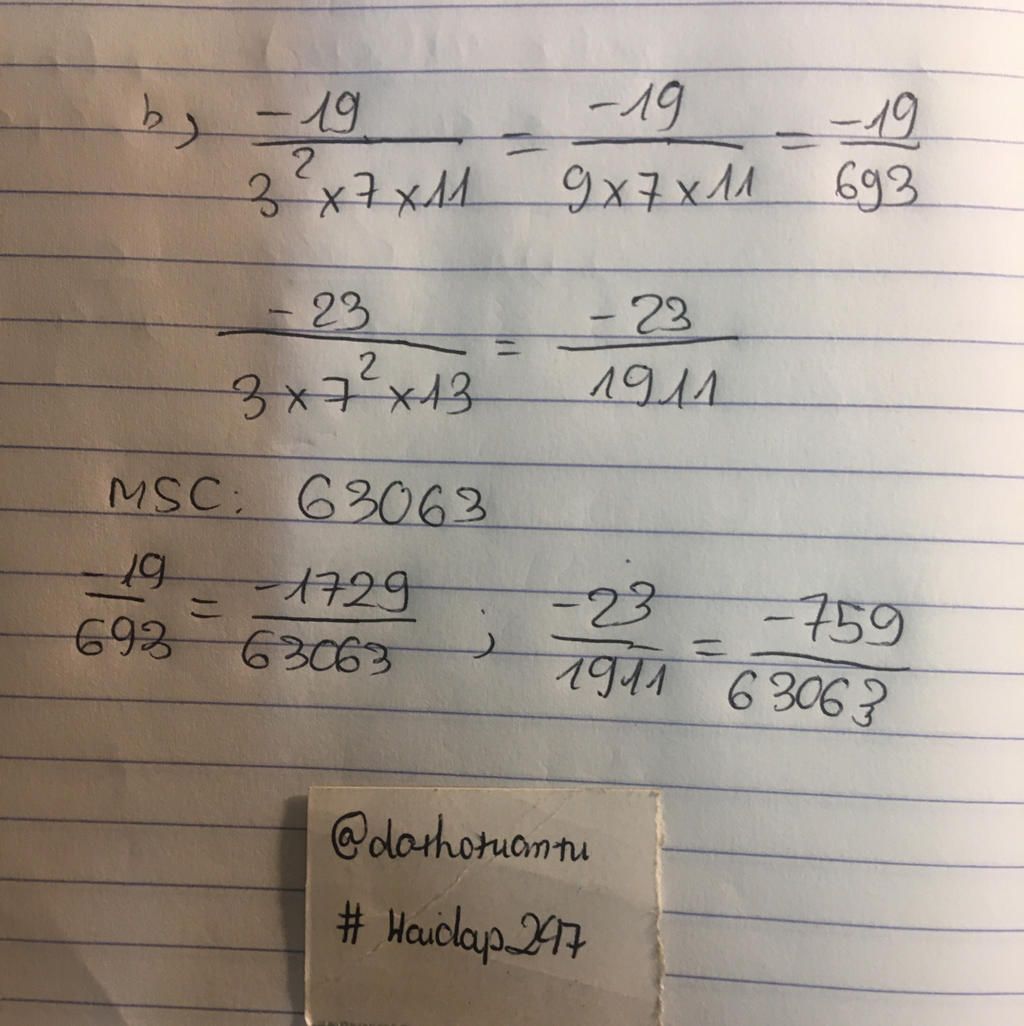 b, -19/3²×7×11 = -19/9×7×11 = -19/693
-23/3×7²×13 = -23/1911
MSC: 63063
-19/693 = -1729/63063 ; -23/1911 = -759/63063
@dathotuantu
# Hoidap247